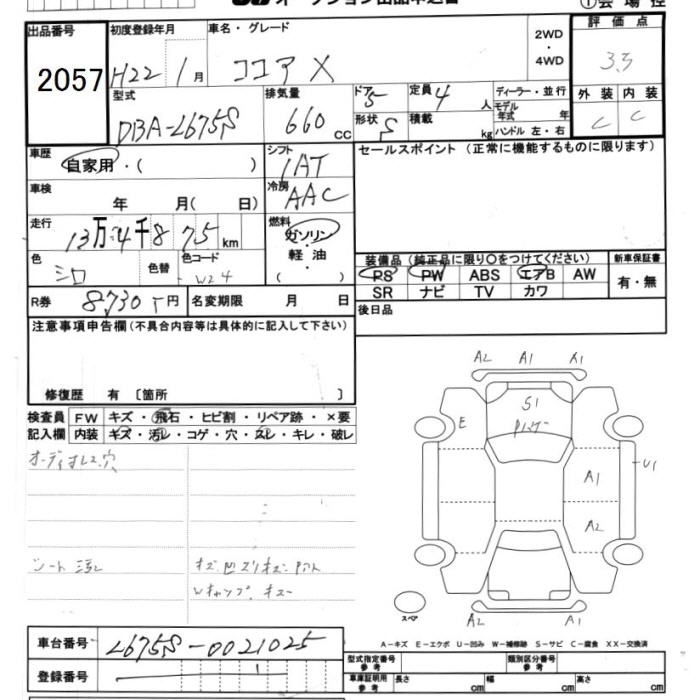 オークション出品申込書
①会場控
出品番号
2057
初度登録年月
H22 1月
車名・グレード
ココア X
2WD
・
4WD
評価点
3.5
型式
DBA-L675S
排気量
660 cc
ドア 5
形状 S
定員 4 人
積載 kg
ディーラー・並行
モデル年式 年
ハンドル 左・右
外装 内装
C C
車歴
自家用・( )
シフト
IAT
セールスポイント (正常に機能するものに限ります)
車検
年 月( 日)
冷房
AAC
走行
13万4千875km
燃料
ガソリン
・
軽油
( )
色
シロ
色替
色コード
W24
装備品 (純正品に限り○をつけてください)
PS PW ABS エアB AW
SR ナビ TV カワ
新車保証書
有・無
R券 8730 円
名変期限 月 日
後日品
注意事項申告欄(不具合内容等は具体的に記入して下さい)
修復歴 有 〔箇所 〕
検査員 FW キズ・飛石・ヒビ割・リペア跡・×要
記入欄 内装 キズ・汚レ・コゲ・穴・スレ・キレ・破レ
A2 A1 A1
S1
E
A1
U1
A2
A2 A1
スペア
A-キズ E-エクボ U-凹み W-補修跡 S-サビ C-腐食 XX-交換済
車台番号 L675S-0021025
登録番号
型式指定番号 参考
類別区分番号 参考
車庫証明用 参考 長さ cm 幅 cm 高さ cm